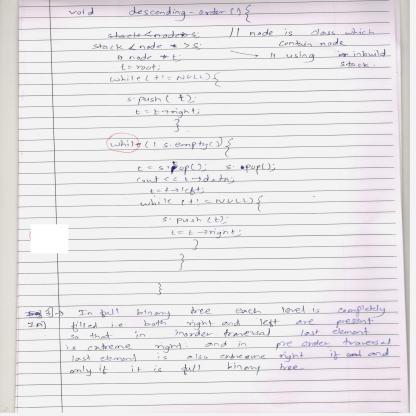 void descending-order() {
stack<node> s; // node is class which
stack <node *> s; contain node
node *t; // using inbuild
t = root; stack.
while (t != NULL) {
s.push( t);
t = t→right;
}
while (! s.empty()) {
t = s.top(); s.pop();
cout << t→data;
t = t→left;
while (t != NULL) {
s.push (t);
t = t→right;
}
}
}
3]→ In full binary tree each level is completely
filled i.e. both right and left are present
so that in inorder traversal last element
is extreme right. and in pre order traversal
last element is also extreme right if and
only if it is full binary tree.